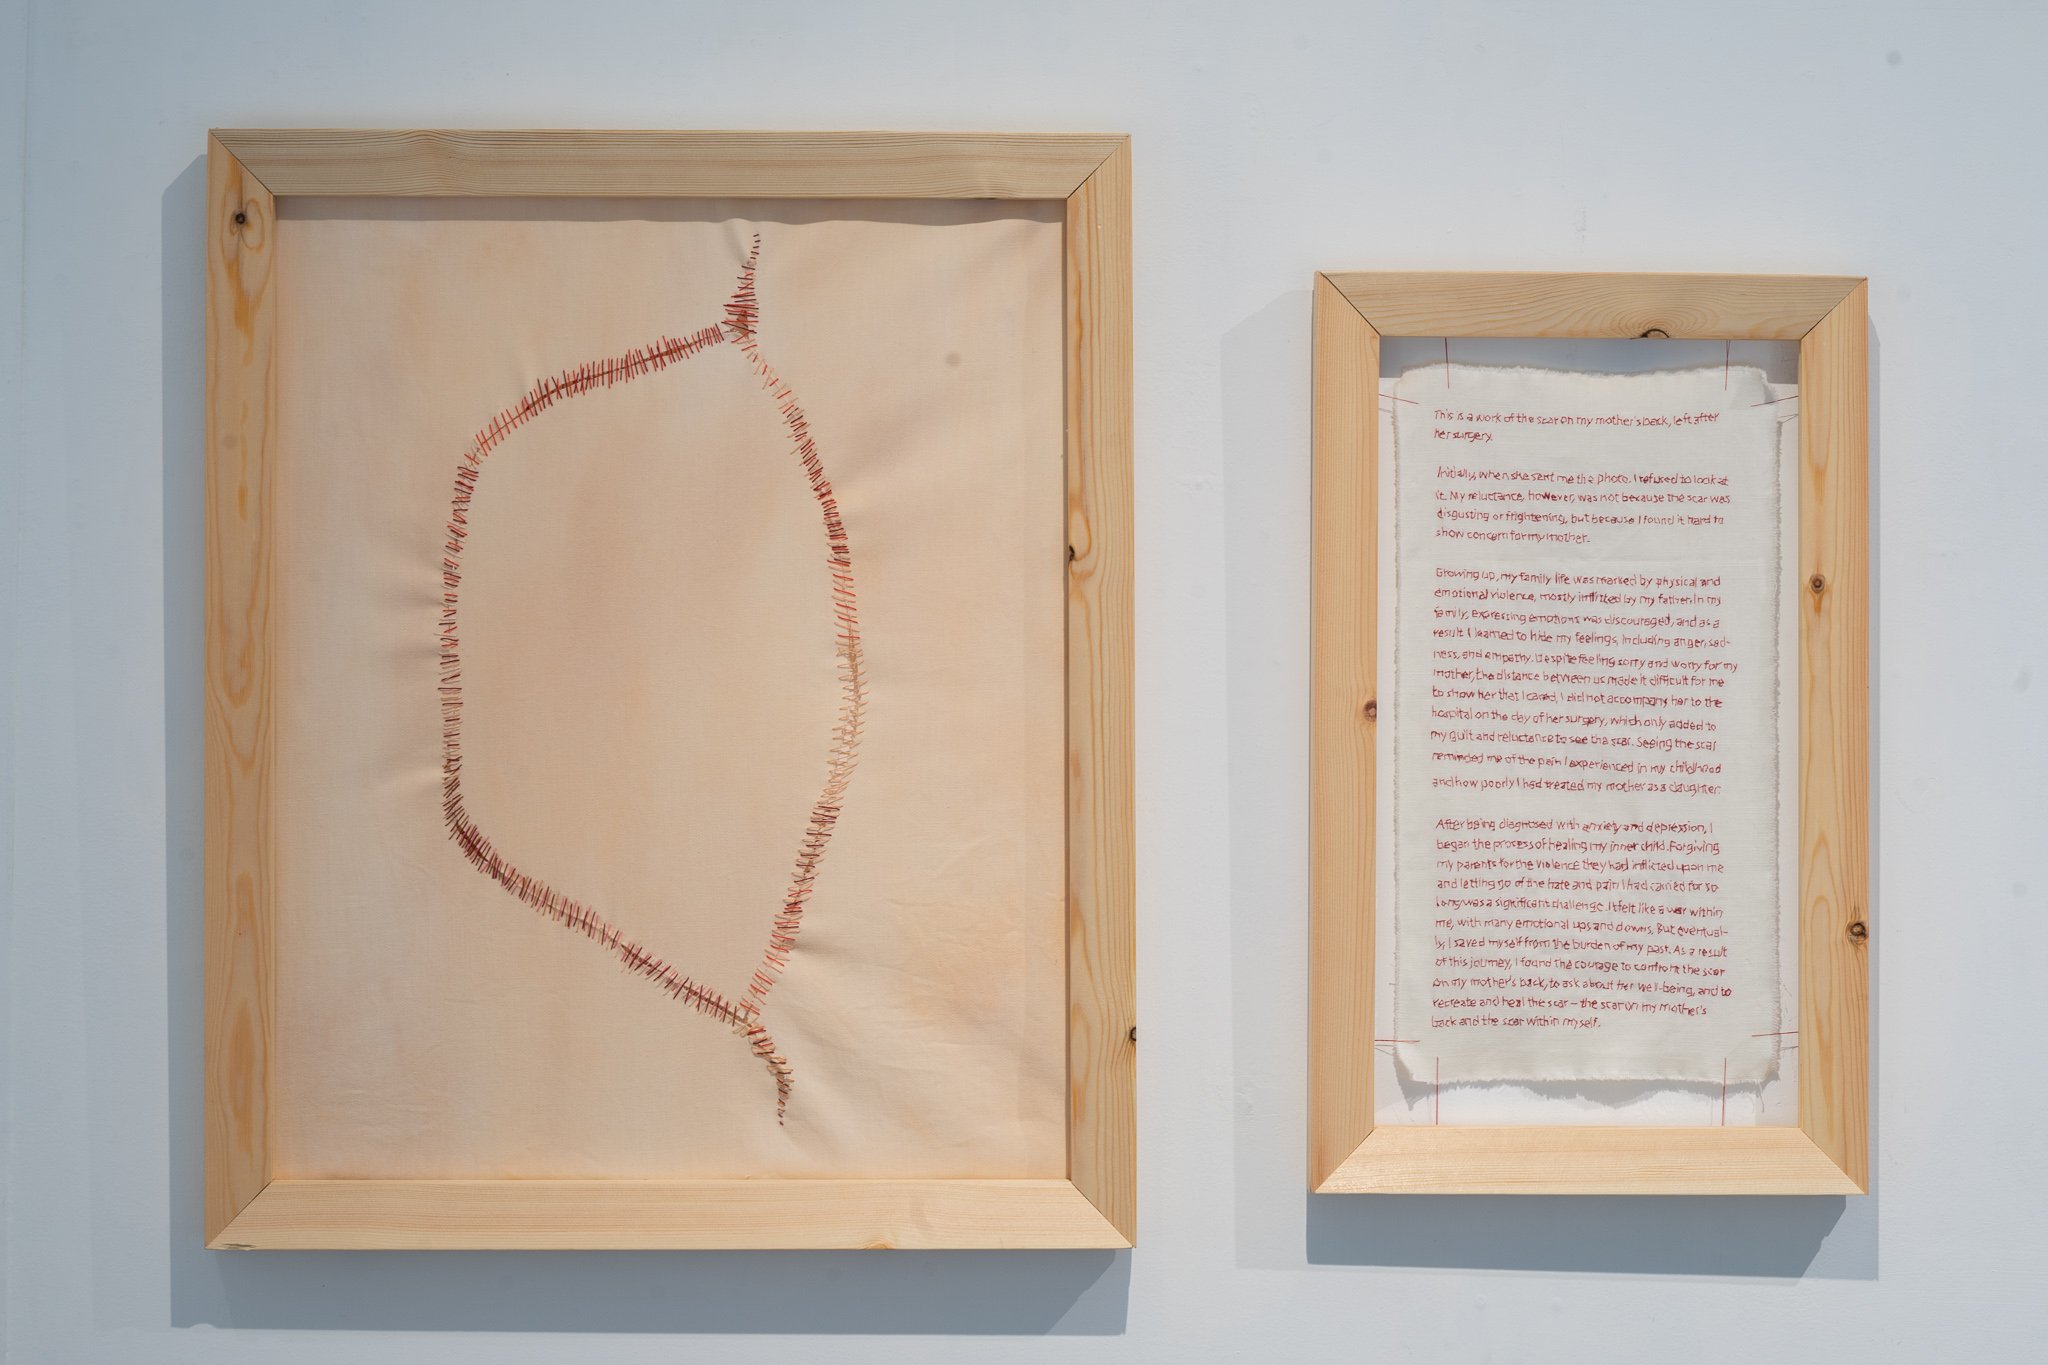 This is a work of the scar on my mother's back, left after
her surgery.
Initially, when she sent me the photo, I refused to look at
it. My reluctance, however, was not because the scar was
disgusting or frightening, but because I found it hard to
show concern for my mother.
Growing up, my family life was marked by physical and
emotional violence, mostly inflicted by my father. In my
family, expressing emotions was discouraged, and as a
result I learned to hide my feelings, including anger, sad-
ness, and empathy. Despite feeling sorry and worry for my
mother, the distance between us made it difficult for me
to show her that I cared, I did not accompany her to the
hospital on the day of her surgery, which only added to
my guilt and reluctance to see the scar. Seeing the scar
reminded me of the pain I experienced in my childhood
and how poorly I had treated my mother as a daughter.
After being diagnosed with anxiety and depression, I
began the process of healing my inner child. Forgiving
my parents for the violence they had inflicted upon me
and letting go of the hate and pain I had carried for so
long was a significant challenge. It felt like a war within
me, with many emotional ups and downs, But eventual-
ly, I saved myself from the burden of my past. As a result
of this journey, I found the courage to confront the scar
on my mother's back, to ask about her well-being, and to
recreate and heal the scar – the scar on my mother's
back and the scar within myself.